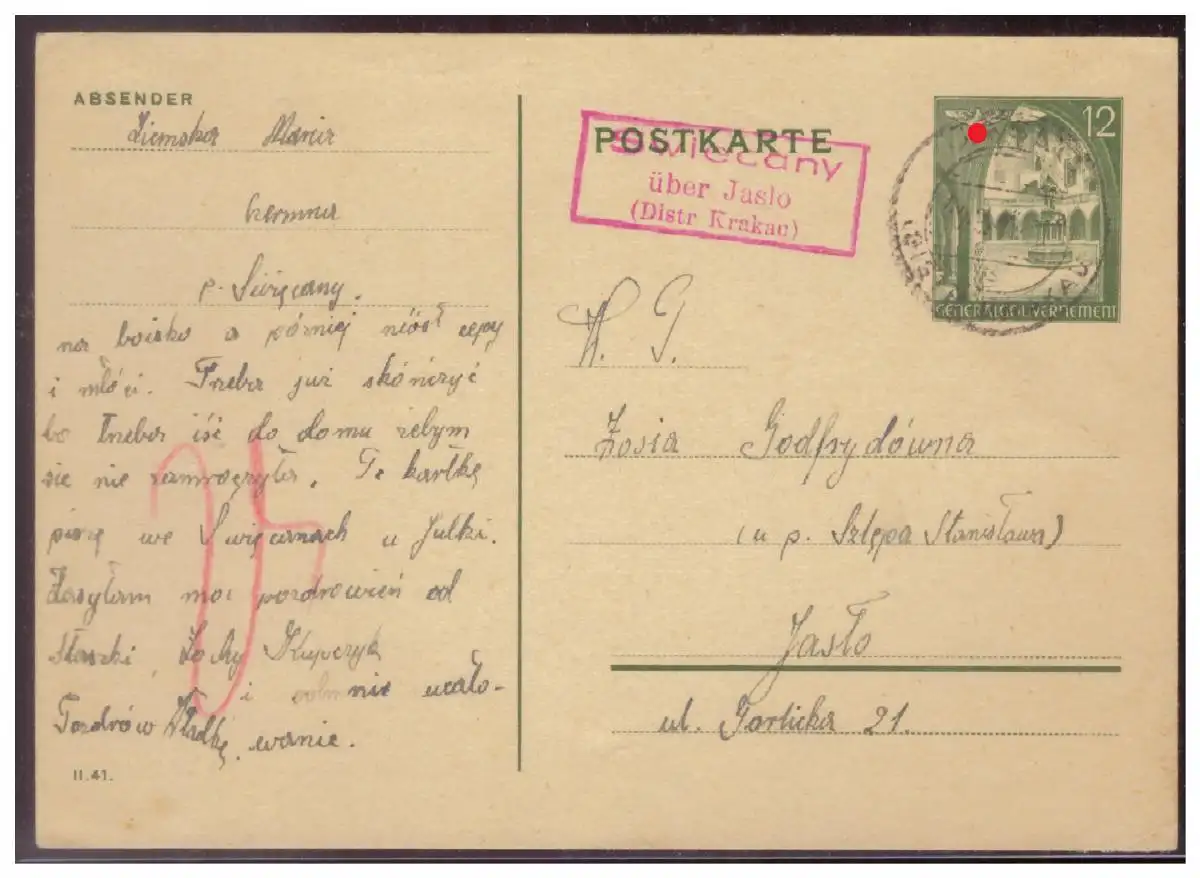 ABSENDER
Ziemska Maria
Czermna
p. Święcany.
na boisko a później niósł cepy
i młóci. Trzeba już skończyć
bo trzeba iść do domu żebym
się nie zamroczyła. Tę kartkę
piszę we Święcanach u Julki.
Zasyłam moc pozdrowień od
Staszki, Zochy Kupczyk
i odemnie ucało-
Pozdrów Władkę. wanie.
II.41.
POSTKARTE
Swiecany
über Jaslo
(Distr Krakau)
12
GENERALGOUVERNEMENT
W. P.
Zosia Godfrydówna
(u p. Szlępa Stanisława)
Jasło
ul. Gorlicka 21.